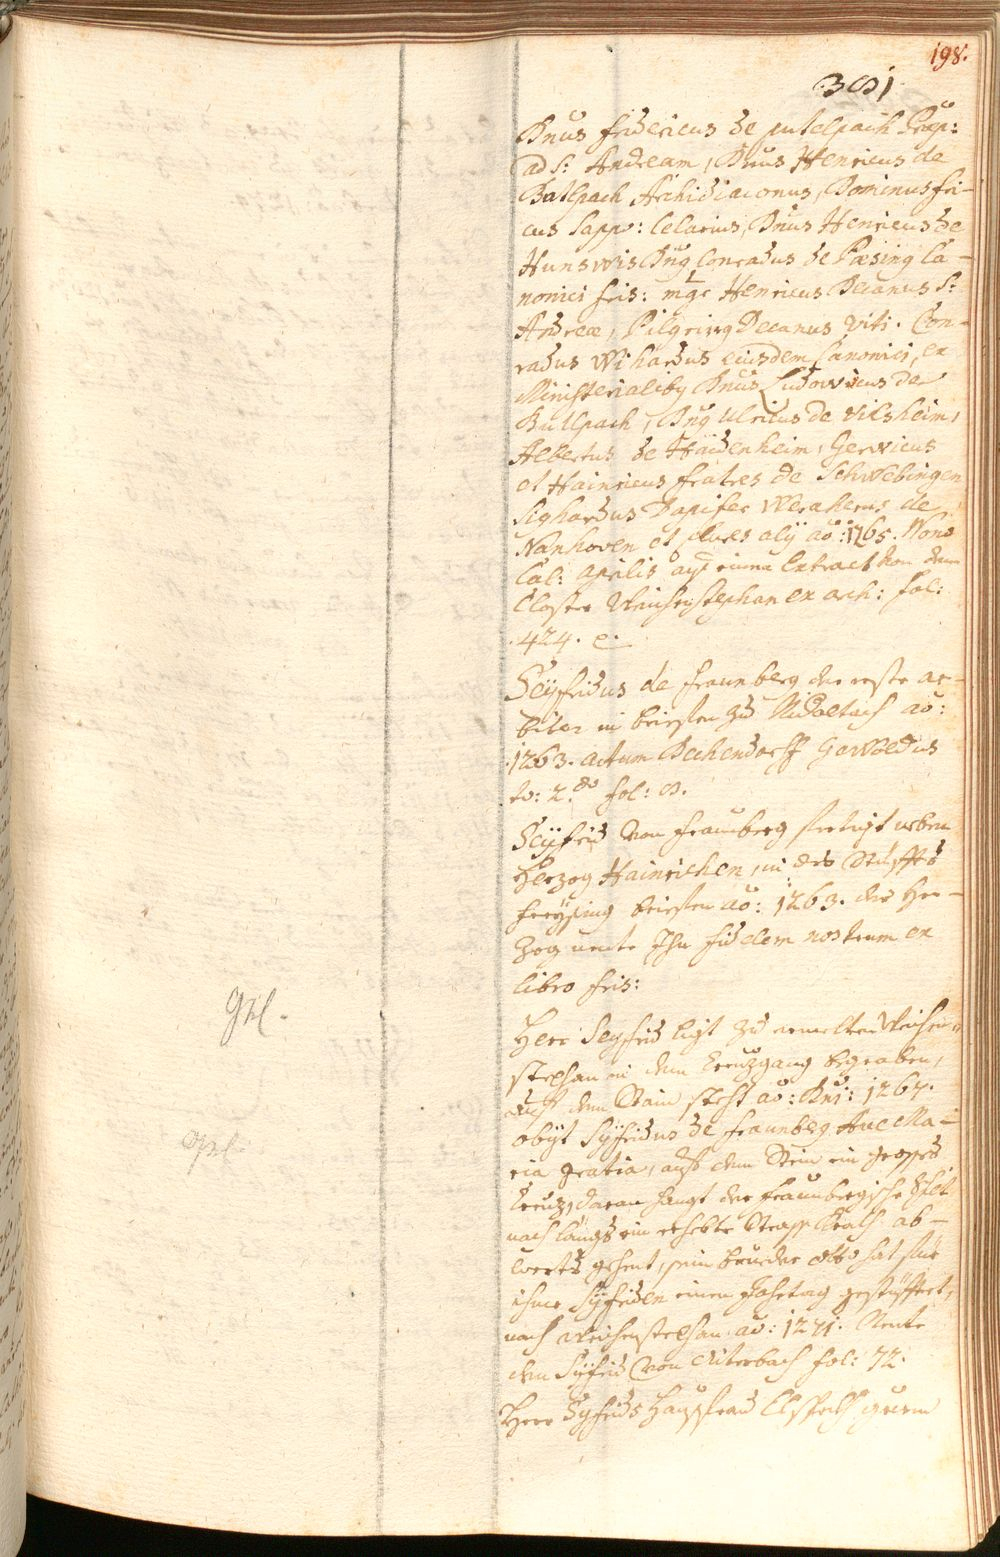 198.
301
Dnus Fridericus de putelpach Præp:
ad S: Andream, Dnus Henricus de
Butlpach Archidiaconus, Dominus Fri-
cus Sapp: Celarius, Dnus Henricus de
Hunswis Dng Conradus de Pæsing Ca-
nonici fris: mgr Henricus Decanus S:
Andreæ, Pilgring Decanus Viti. Con-
radus Wihardus eiusdem Canonici, ex
Ministerialibg Dnus Ludovvicus de
Butlpach, Dng Ulricus de Vilsheim,
Albertus de Haidenheim, Gervvicus
et Hainricus fratres de Schwebingen
Sighardus Dapifer Wernherus de
Nanhoven et plures alÿ aõ: 1265. Nono
Cal: Aprilis auß einem Extract von dem
Closter Weichenstephan ex arch: fol:
424. e.
Seÿfridus de fraunberg der erste ar-
biter in briefen zu Nideltach aõ:
1263. actum Dechendorff Gewoldus
to: 2.do fol: 3.
Seÿfrid von fraunberg fertigt neben
Herzog Hainrichen, in des Stüffts
freÿsing briefen aõ: 1263. der Her-
zog nente Ihn fidelem nostrum ex
libro fris:
Herr Seyfrid ligt zu ermelten Weichen-
stephan in dem Creuzgang begraben,
auf dem Stain steht aõ: Dni: 1267.
obijt Sÿfridus de fraunberg Ave Ma-
ria gratia, auf dem Stein ein grosses
Creuz, daran hangt der fraunbergische Schilt
nach längs ein erhebte Strapp
werts gehent, sein brueder Otto hat für
ihme Sÿfriden einen Jahrtag gestüfftet,
nach Weichenstephan aõ: 1271. Nente
den Sÿfrid von Aiterbach fol: 72.
Herr Sÿfrids Haussfrau Elspeth